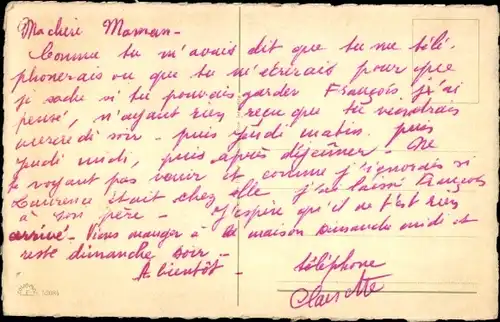 Ma chérie Maman -
Comme tu m'avais dit que tu me télé-
phonerais ou que tu m'écrirais pour que
je sache si tu pouvais garder François j'ai
pensé, n'ayant rien reçu que tu viendrais
mercredi soir - puis jeudi matin. puis
jeudi midi, puis après déjeûner - Ne
te voyant pas venir et comme j'ignorais si
Laurence était chez elle j'ai laissé François
à son père - J'espère qu'il ne t'est rien
arrivé - Viens manger à la maison Dimanche midi et
reste dimanche soir -
A bientôt - téléphone
Clairette